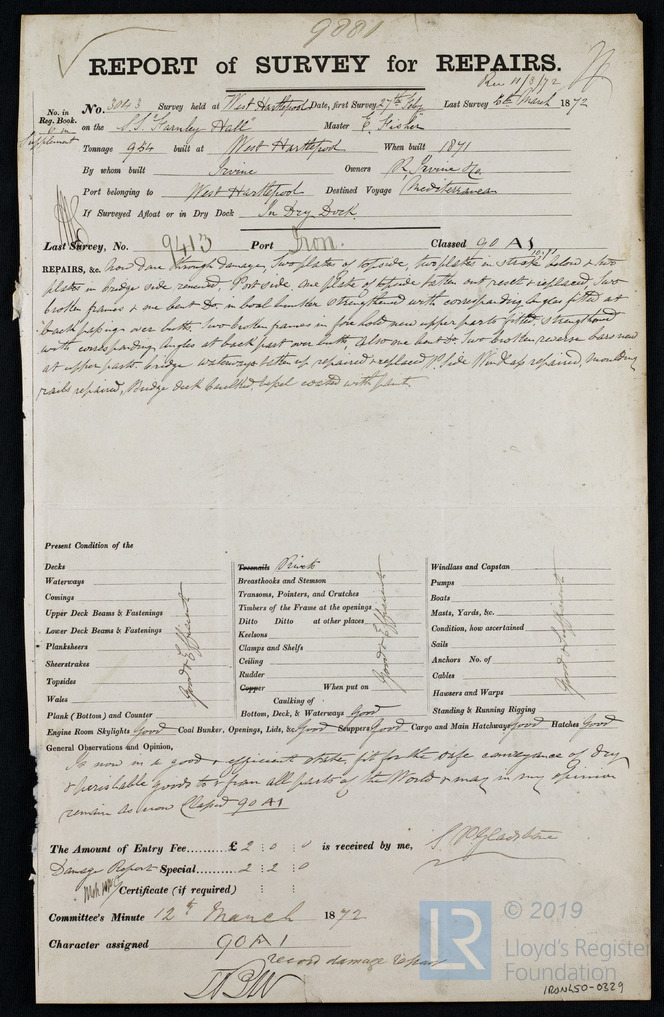 9881
REPORT of SURVEY for REPAIRS.
Rec 11/3/72
No. in Reg. Book.
No. 3043 Survey held at West Hartlepool Date, first Survey 27th Feby Last Survey 6th March 1872
Supplement
on the S.S. "Farnley Hall" Master E. Fisher
Tonnage 954 built at West Hartlepool When built 1871
By whom built Irvine Owners R. Irvine & Co.
Port belonging to West Hartlepool Destined Voyage Mediterranean
If Surveyed Afloat or in Dry Dock In Dry Dock.
Last Survey, No. 9413 Port Iron. Classed 90 A1
REPAIRS, &c. now done through damage, Two plates of topside, two plates in strake below & two
plates in bridge side renewed, Port side, one plate of topside taken out, reset & replaced, Two
broken frames & one bent Do. in coal bunker strengthened with corresponding angles fitted at
back passing over butts, two broken frames in fore hold new upper parts fitted, strengthened
with corresponding angles at back part over butts, also one bent Do. Two broken reverse bars new
at upper part. bridge waterways taken up, repaired & replaced, Side repaired, moulding
rails repaired, Bridge deck caulked, coated with paint
Present Condition of the
Decks
Waterways
Comings
Upper Deck Beams & Fastenings
Lower Deck Beams & Fastenings
Planksheers
Sheerstrakes
Topsides
Wales
Plank (Bottom) and Counter
Good & Efficient
Treenails Rivets
Breasthooks and Stemson
Transoms, Pointers, and Crutches
Timbers of the Frame at the openings
Ditto Ditto at other places
Keelsons
Clamps and Shelfs
Ceiling
Rudder
Copper When put on
Caulking of
Bottom, Deck, & Waterways Good
Good & Efficient
Windlass and Capstan
Pumps
Boats
Masts, Yards, &c.
Condition, how ascertained
Sails
Anchors No. of
Cables
Hawsers and Warps
Standing & Running Rigging
Good & Sufficient
Engine Room Skylights Good Coal Bunker, Openings, Lids, &c. Good Scuppers Good Cargo and Main Hatchways Good Hatches Good
General Observations and Opinion,
Is now in a good & efficient state, fit for the safe conveyance of dry
& perishable goods to & from all parts of the World & may in my opinion
remain as now Classed 90 A1
The Amount of Entry Fee......... £ 2 : 0 : 0 is received by me, Gladstone
Damage Report Special......... 2 : 2 : 0
Certificate (if required) : :
Committee's Minute 12th March 1872
Character assigned 90 A1
record damage repair
LR
© 2019
Lloyd's Register
Foundation
IRON450-0329